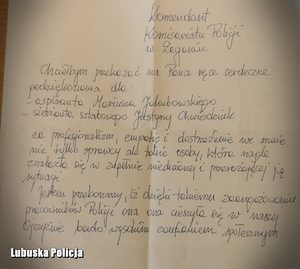 Komendant
Komisariatu Policji
w Żaganiu
Chciałbym przekazać na Pana ręce serdeczne
podziękowania dla:
- aspiranta Mariusza Jakubowskiego
- sierżanta sztabowego Justyny
za profesjonalizm, empatię i dostrzeżenie we mnie
nie tylko sprawcy ale także osoby, która nagle
znalazła się w zupełnie nieznanej i przerażającej ją
sytuacji.
Jestem przekonany, iż dzięki takiemu zaangażowaniu
pracowników Policji ona cieszyła się w naszej
Ojczyźnie bardzo wysokim zaufaniem społecznym
Lubuska Policja